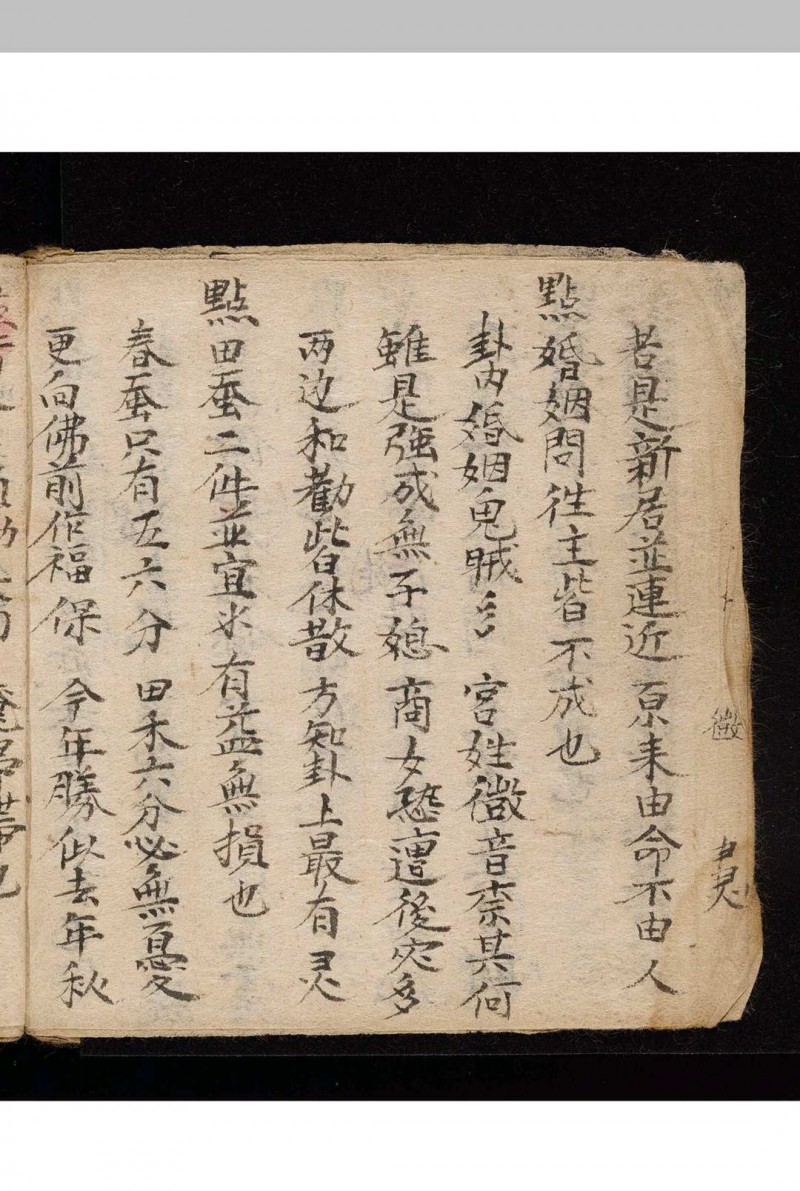 徵
灵
若是新居並連近 原来由命不由人
點婚姻問往主皆不成也
卦内婚姻鬼賊多 宮姓徵音柰其何
雖是強成無子媳 商女恐遭後灾多
两边和勸皆休散 方知卦上最有灵
點田蚕二件並宜米有益無損也
春蚕只有五六分 田禾六分必無憂
更向佛前作福保 今年勝似去年秋